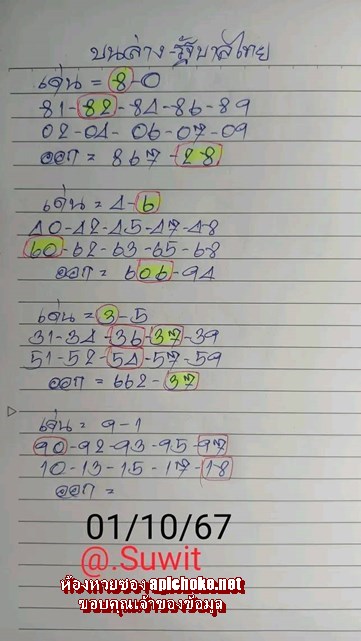 บนล่าง-รัฐบาลไทย
เด่น = 8-0
81-82-84-86-89
02-04-06-07-09
ออก = 867-28
เด่น = 4-6
40-42-45-47-48
60-62-63-65-68
ออก = 606-94
เด่น = 3-5
31-34-36-37-39
51-52-54-57-59
ออก = 662-37
เด่น = 9-1
90-92-93-95-97
10-13-15-17-18
ออก =
01/10/67
@.Suwit
ห้องหวยซอง apichoke.net
ขอบคุณเจ้าของข้อมูล